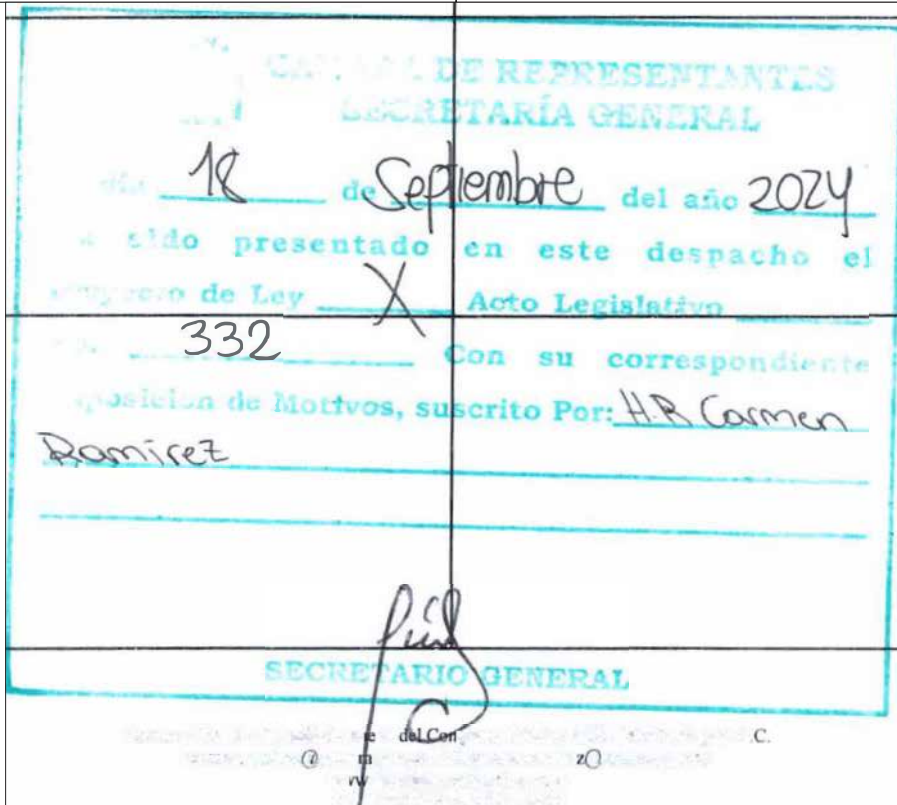 DE REPRESENTANTES
SECRETARÍA GENERAL
día 18 de Septiembre del año 2024
sido presentado en este despacho el
de Ley X Acto Legislativo
332 Con su correspondiente
de Motivos, suscrito Por: H.R Carmen
Ramirez
SECRETARIO GENERAL
del Con C.